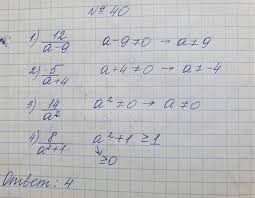 № 40
1) 12/(a-9) a-9≠0 → a≠9
2) 5/(a+4) a+4≠0 → a≠-4
3) 14/a² a²≠0 → a≠0
4) 8/(a²+1) a²+1 ≥1
≥0
Ответ: 4